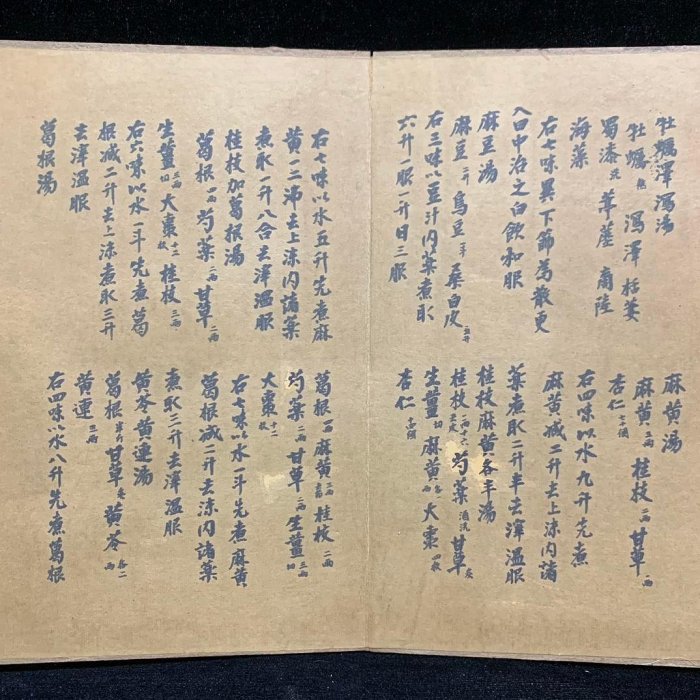 牡蠣澤瀉湯
牡蠣 熬 瀉澤 栝蔞
蜀漆 洗 葶藶 商陸
海藻
右七味異下篩為散更
入臼中治之白飲和服
麻豆湯
麻豆 二升 烏豆 一升 桑白皮 五升
右三味以豆汁内藥煮取
六升一服一升日三服
麻黄湯
麻黄 三兩 桂枝 二兩 甘草 一兩
杏仁 七十個
右四味以水九升先煮
麻黄減二升去上沫内諸
藥煮取二升半去滓温服
桂枝麻黄各半湯
桂枝 芍藥 酒洗 甘草 炙
生薑 切 麻黄 大棗 四枚
杏仁
右七味以水五升先煮麻
黄一二沸去上沫内諸藥
煮取一升八合去滓温服
桂枝加葛根湯
葛根 四兩 芍藥 二兩 甘草 二兩
生薑 三兩切 大棗 十二枚 桂枝 二兩
右六味以水一斗先煮葛
根減二升去上沫煮取三升
去滓温服
葛根湯
葛根 四兩 麻黄 三兩 桂枝 二兩
芍藥 二兩 甘草 二兩 生薑 三兩切
大棗 十二枚
右七味以水一斗先煮麻黄
葛根減二升去沫内諸藥
煮取二升去滓温服
黄芩黄連湯
葛根 半斤 甘草 炙 黄芩 各二兩
黄連 三兩
右四味以水八升先煮葛根